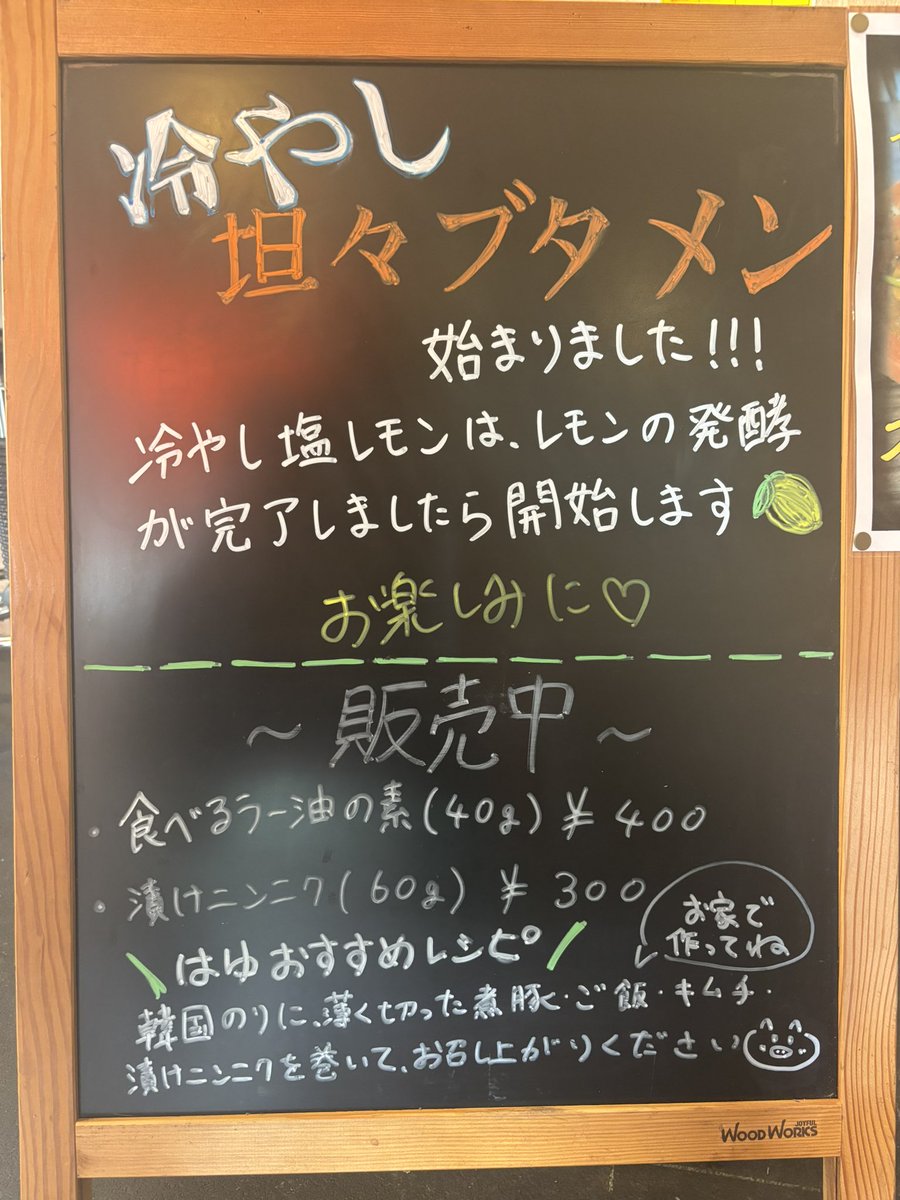 冷やし
坦々ブタメン
始まりました!!!
冷やし塩レモンは、レモンの発酵
が完了しましたら開始します
お楽しみに♡
～販売中～
・食べるラー油の素(40g) ¥400
・漬けニンニク(60g) ¥300
お家で
作ってね
\はゆおすすめレシピ/
韓国のりに、薄く切った煮豚・ご飯・キムチ・
漬けニンニクを巻いて、お召し上がりください
JOYFUL
WOODWORKS